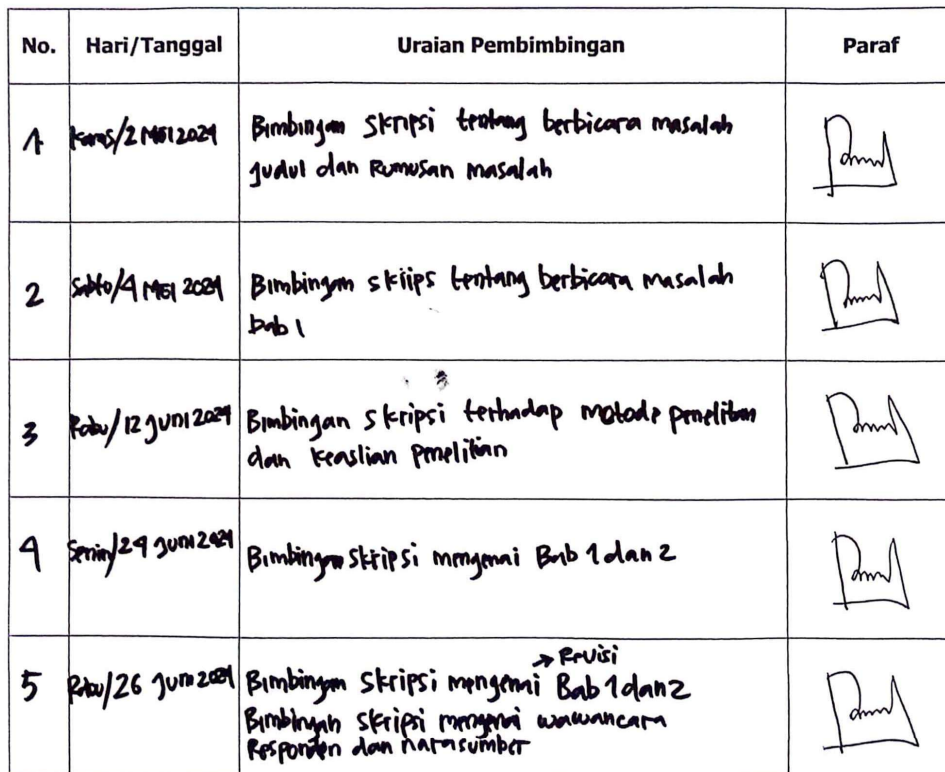 No. Hari/Tanggal Uraian Pembimbingan Paraf
1 Kamis/2 MEI 2024 Bimbingan skripsi tentang berbicara masalah
judul dan Rumusan masalah
2 Sabtu/4 MEI 2024 Bimbingan skiips tentang berbicara masalah
bab 1
3 Rabu/12 JUNI 2024 Bimbingan skripsi terhadap metode penelitian
dan keaslian penelitian
4 Senin/24 Juni 2024 Bimbingan skripsi mengenai Bab 1 dan 2
→ Revisi
5 Rabu/26 Juni 2024 Bimbingan skripsi mengenai Bab 1 dan 2
Bimbingan skripsi mengenai wawancara
Responden dan narasumber